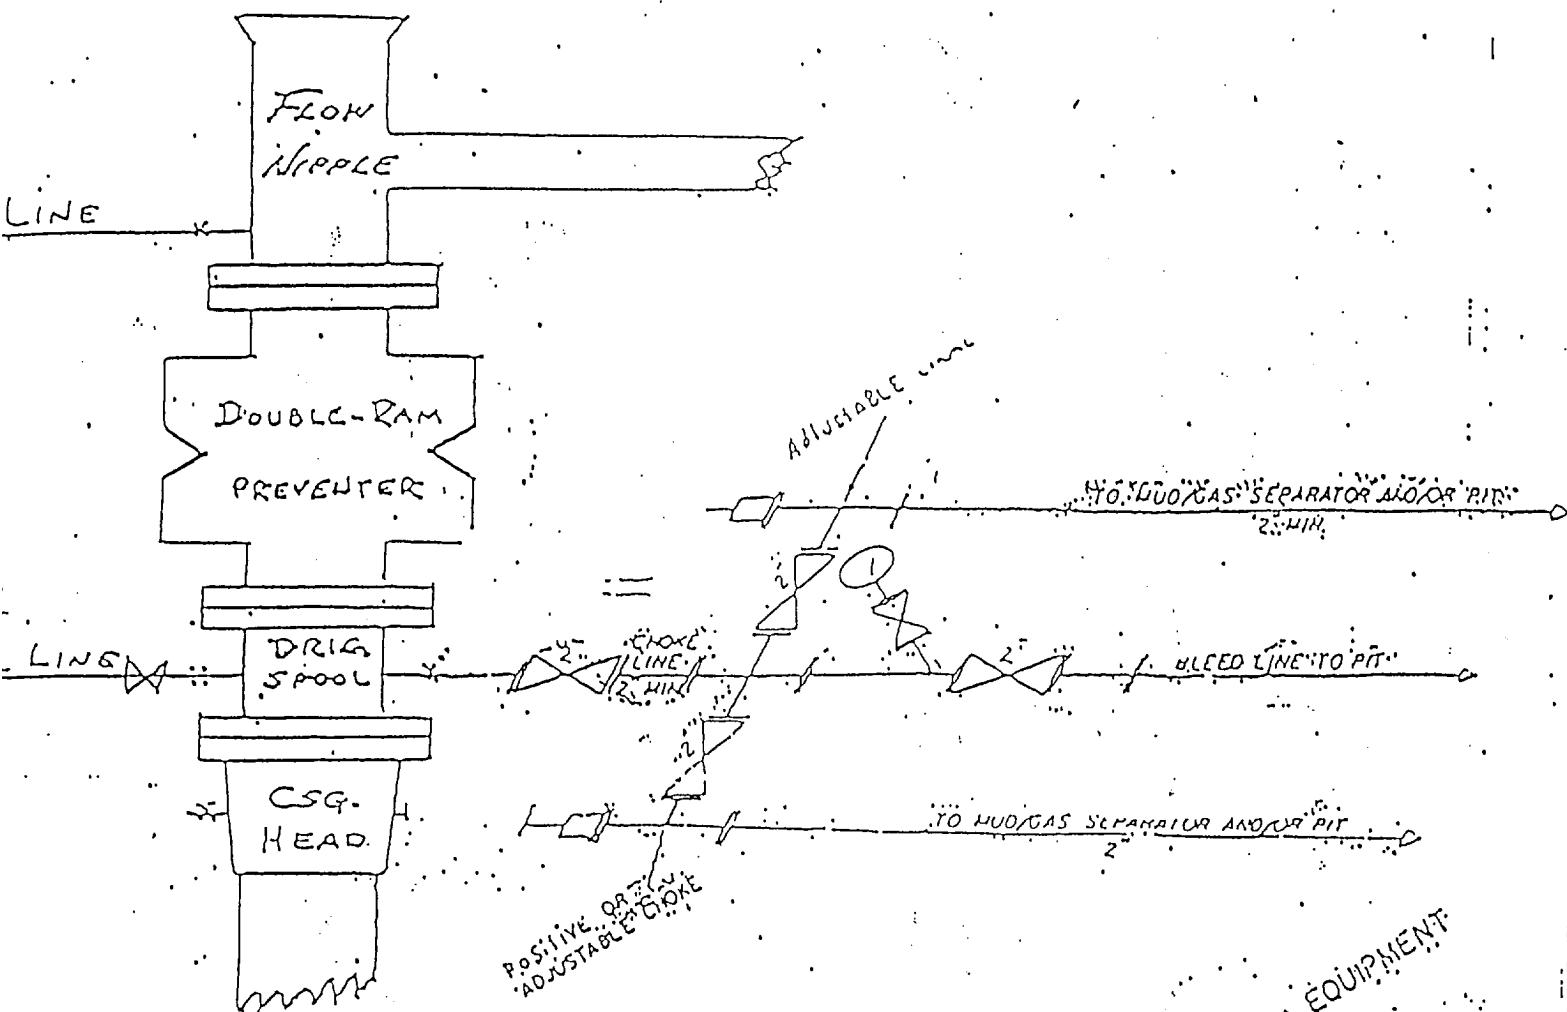 FLOW
NIPPLE
LINE
DOUBLE-RAM
PREVENTER
ADJUSTABLE
TO MUD/GAS SEPARATOR AND/OR PIT
2" MIN.
2"
1
LINE
DRLG
SPOOL
2"
CHOKE
LINE
2" MIN
2"
BLEED LINE TO PIT
2"
CSG.
HEAD
TO MUD/GAS SEPARATOR AND/OR PIT
2"
POSITIVE OR
ADJUSTABLE CHOKE
EQUIPMENT